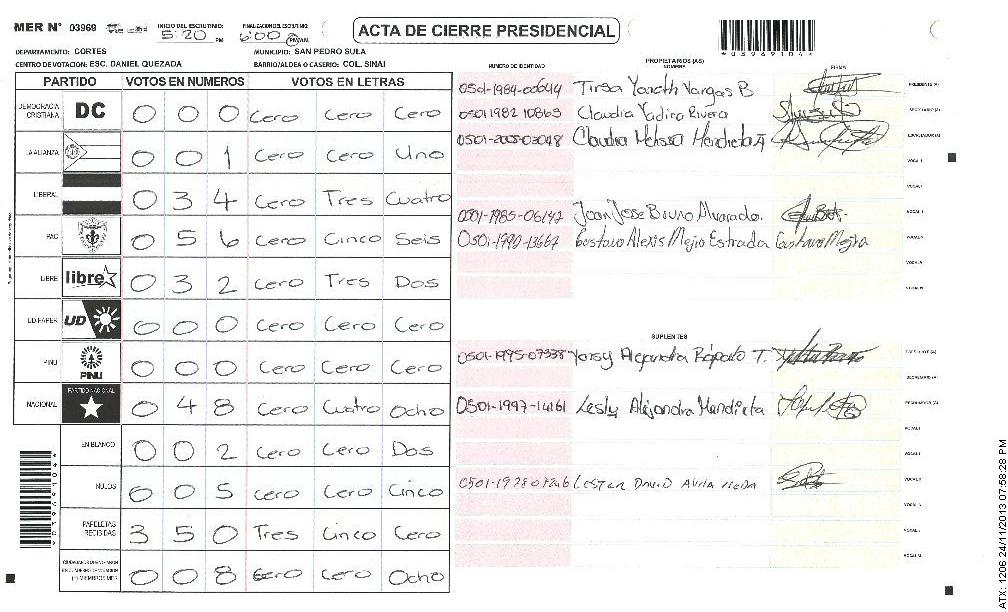 MER N° 03969 INICIO DEL ESCRUTINIO: 5:20 PM FINALIZACION DEL ESCRUTINIO: 6:00 PM
ACTA DE CIERRE PRESIDENCIAL
*03969104*
DEPARTAMENTO: CORTES MUNICIPIO: SAN PEDRO SULA
CENTRO DE VOTACION: ESC. DANIEL QUEZADA BARRIO/ALDEA O CASERIO: COL. SINAI
PARTIDO VOTOS EN NUMEROS VOTOS EN LETRAS
DEMOCRACIA CRISTIANA DC 0 0 0 Cero Cero Cero
LA ALIANZA 0 0 1 Cero Cero Uno
LIBERAL 0 3 4 Cero Tres Cuatro
PAC 0 5 6 Cero Cinco Seis
LIBRE libre 0 3 2 Cero Tres Dos
UD-FAPER UD 0 0 0 Cero Cero Cero
PINU PINU 0 0 0 Cero Cero Cero
NACIONAL PARTIDO NACIONAL 0 4 8 Cero Cuatro Ocho
EN BLANCO 0 0 2 Cero Cero Dos
NULOS 0 0 5 Cero Cero Cinco
PAPELETAS RECIBIDAS 3 5 0 Tres Cinco Cero
0 0 8 Cero Cero Ocho
*03969104*
PROPIETARIOS (AS)
NUMERO DE IDENTIDAD NOMBRE FIRMA
0501-1984-00644 Tirsa Yaneth Vargas B PRESIDENTE (A)
0501 1982 10863 Claudia Yadira Rivera SECRETARIO (A)
0501-2005-03048 Claudia Melissa Mendieta ESCRUTADOR (A)
VOCAL I
0501-1985-06142 Juan Jose Bruno Alvarado.
0501-1990-13667 Gustavo Alexis Mejia Estrada Gustavo Mejia
SUPLENTES
0501-1995-07338 Yensy Alejandra Rapalo T.
SECRETARIO (A)
0501-1997-14161 Lesly Alejandra Mendieta ESCRUTADOR (A)
LESTER DAVID AVILA
ATX: 1206 24/11/2013 07:58:28 PM